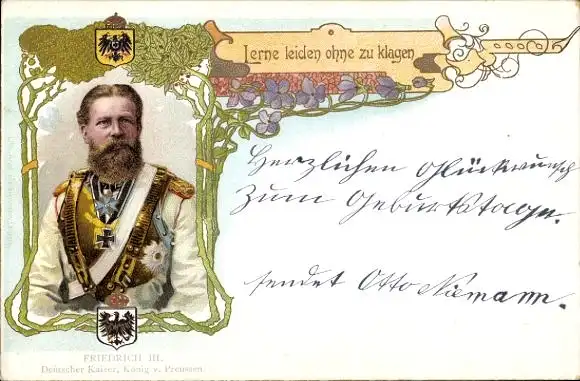 lerne leiden ohne zu klagen
Herzlichen Glückwunsch
zum Geburtstage.
sendet Otto Niemann.
FRIEDRICH III.
Deutscher Kaiser, König v. Preussen